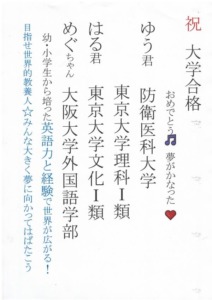 祝 大学合格
おめでとう🎵 夢がかなった❤
ゆう君 防衛医科大学
東京大学理科Ⅰ類
はる君 東京大学文化Ⅰ類
めぐちゃん 大阪大学外国語学部
幼・小学生から培った英語力と経験で世界が広がる!
目指せ世界的教養人☆みんな大きく夢に向かってはばたこう